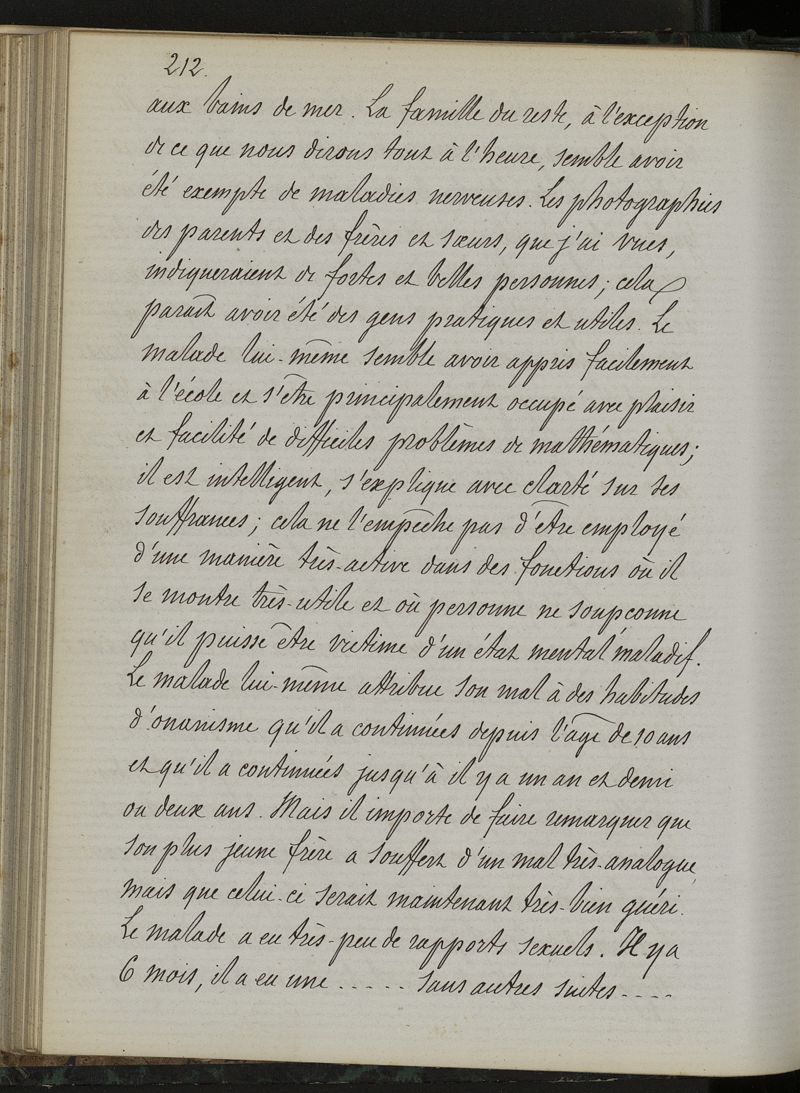 212.
aux bains de mer. La famille du reste, à l'exception
de ce que nous dirons tout à l'heure, semble avoir
été exempte de maladies nerveuses. Les photographies
des parents et des frères et sœurs, que j'ai vues,
indiqueraient de fortes et belles personnes; cela
paraît avoir été des gens pratiques et utiles. Le
malade lui-même semble avoir appris facilement
à l'école et s'être principalement occupé avec plaisir
et facilité de difficiles problèmes de mathématiques;
il est intelligent, s'explique avec clarté sur ses
souffrances; cela ne l'empêche pas d'être employé
d'une manière très-active dans des fonctions où il
se montre très-utile et où personne ne soupçonne
qu'il puisse être victime d'un état mental maladif.
Le malade lui-même attribue son mal à des habitudes
d'onanisme qu'il a continuées depuis l'âge de 10 ans
et qu'il a continuées jusqu'à il y a un an et demi
ou deux ans. Mais il importe de faire remarquer que
son plus jeune frère a souffert d'un mal très-analogue,
mais que celui-ci serait maintenant très-bien guéri.
Le malade a eu très-peu de rapports sexuels. Il y a
6 mois, il a eu une ..... sans autres suites ....